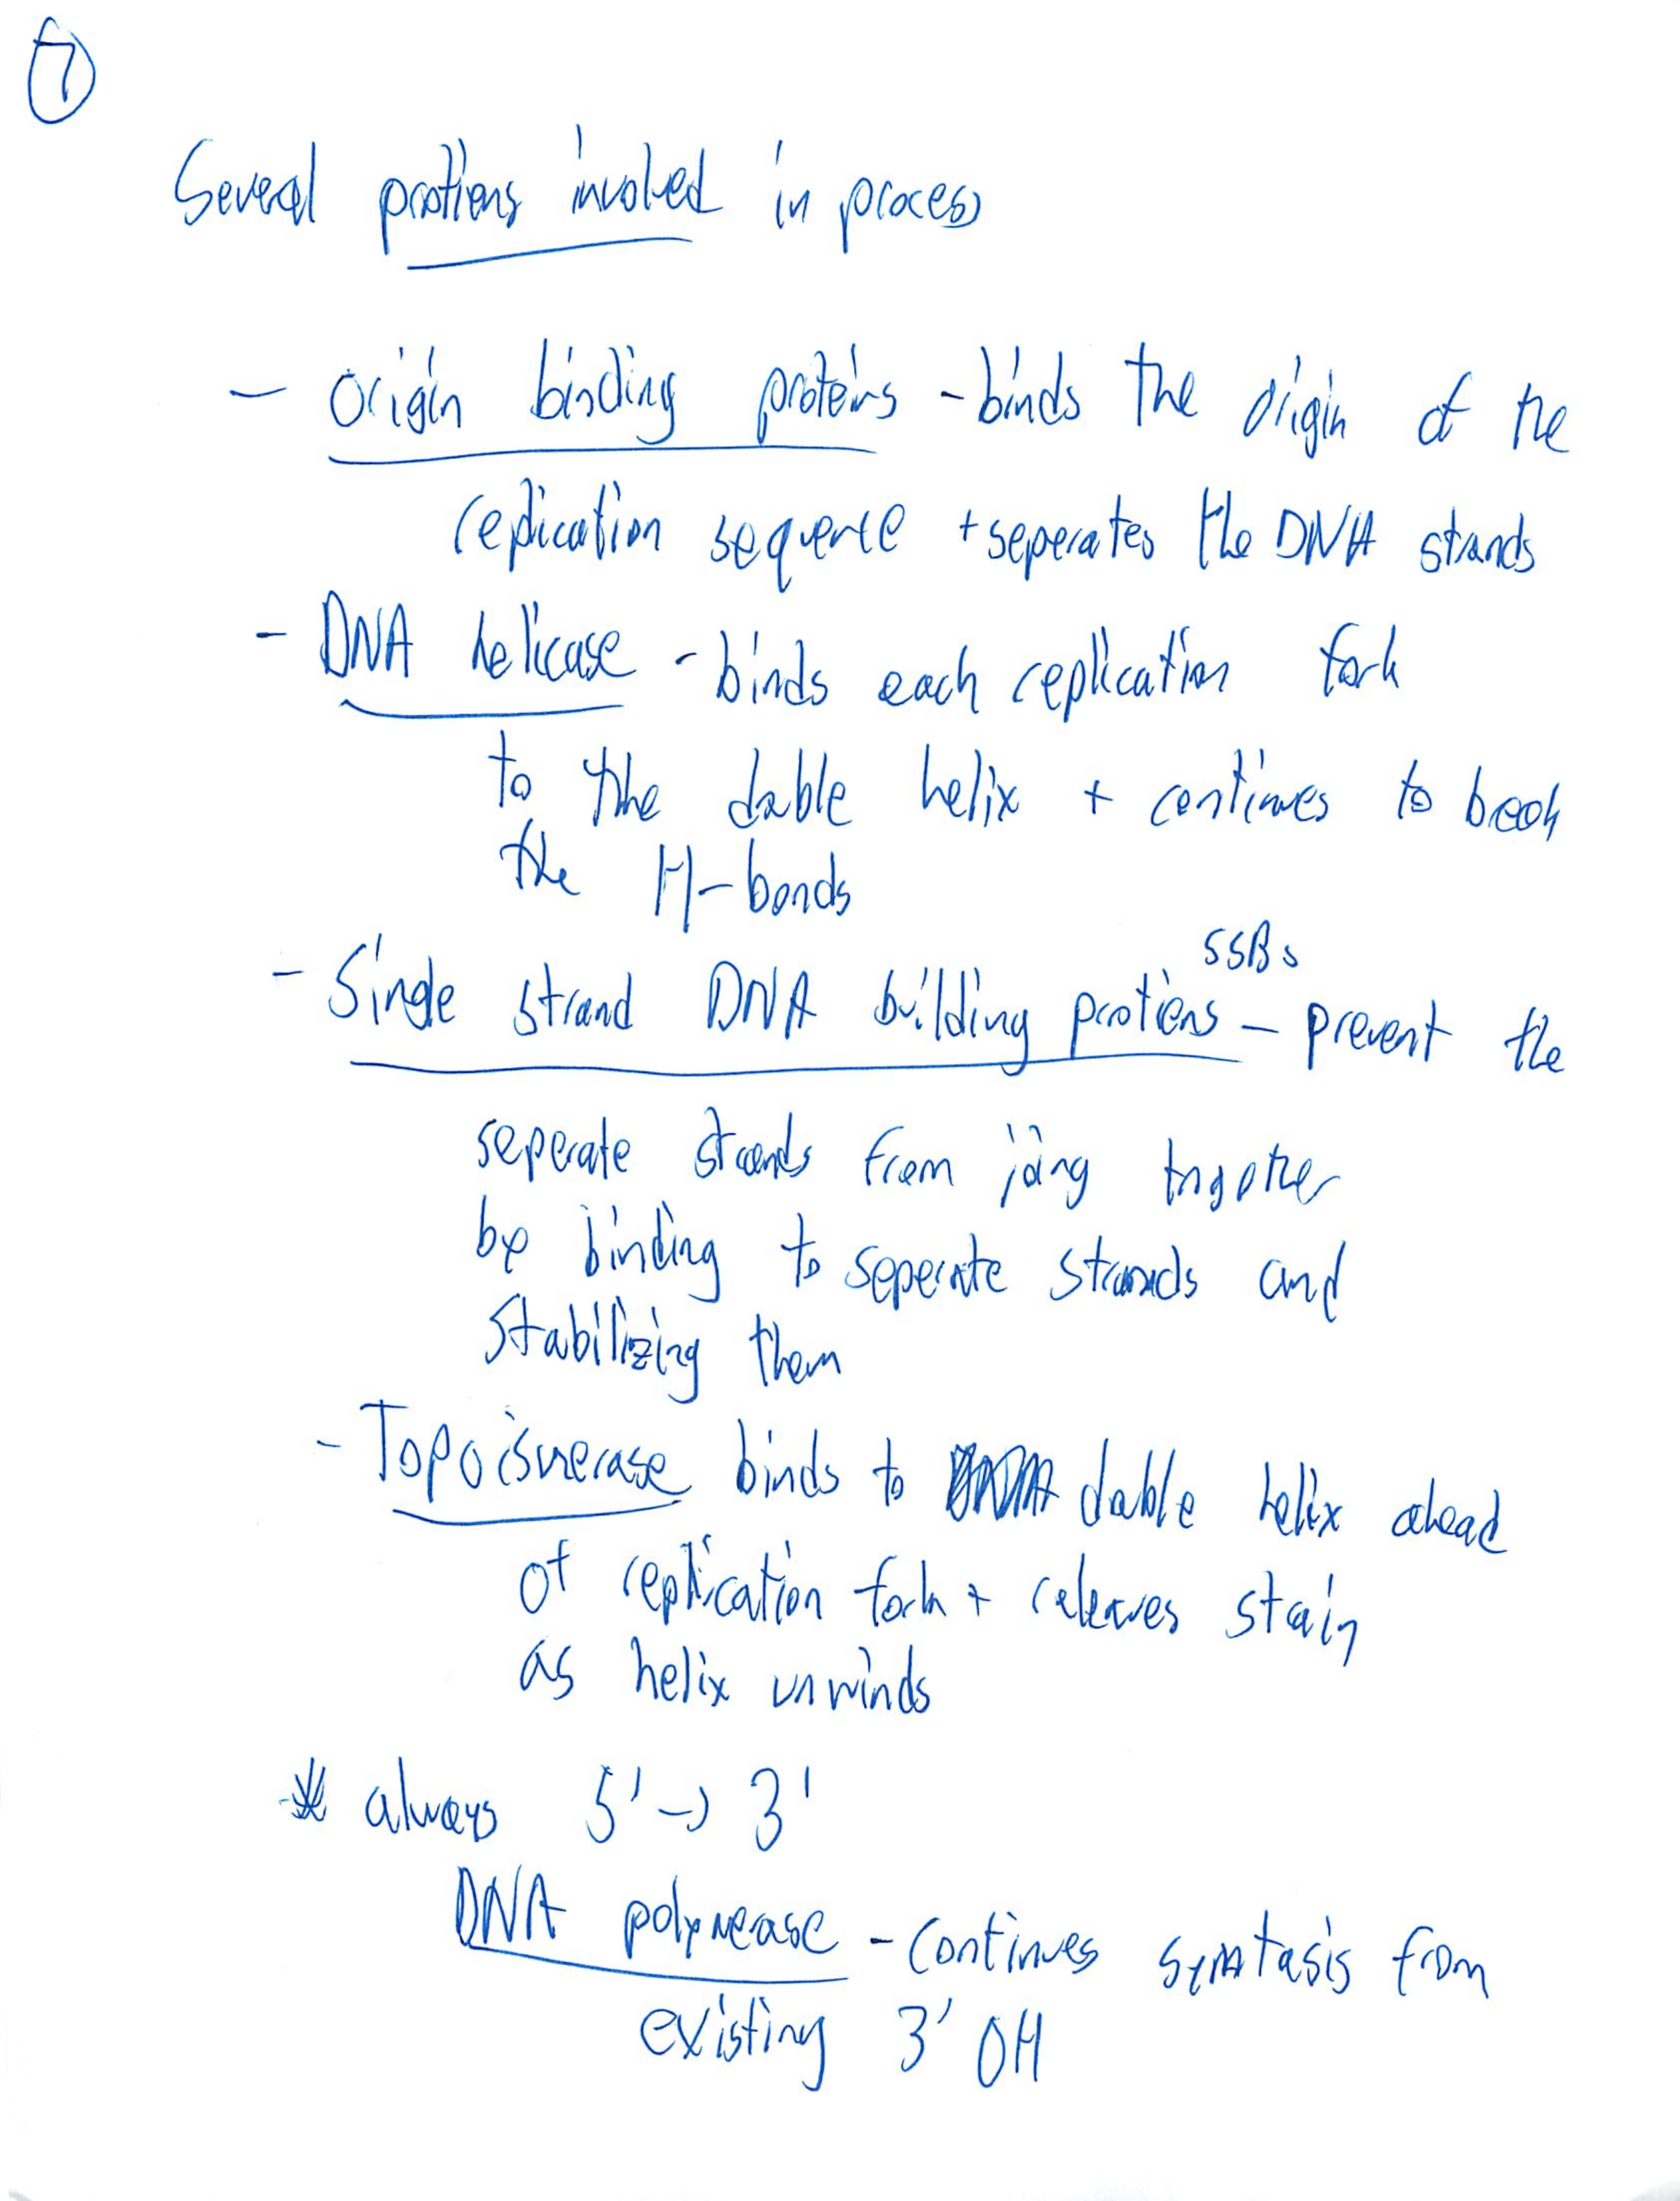 7
Several protiens involved in process
- Origin binding proteins - binds the origin of the
replication sequence + seperates the DNA stands
- DNA helicase - binds each replication fork
to the double helix + continues to break
the H-bonds
SSBs
- Single strand DNA building protiens - prevent the
seperate strands from joing together
by binding to seperate strands and
stabilizing them
- Topoismerase binds to double helix ahead
of replication fork + releaves stain
as helix unwinds
* always 5' → 3'
DNA polymerase - continues from
existing 3' OH